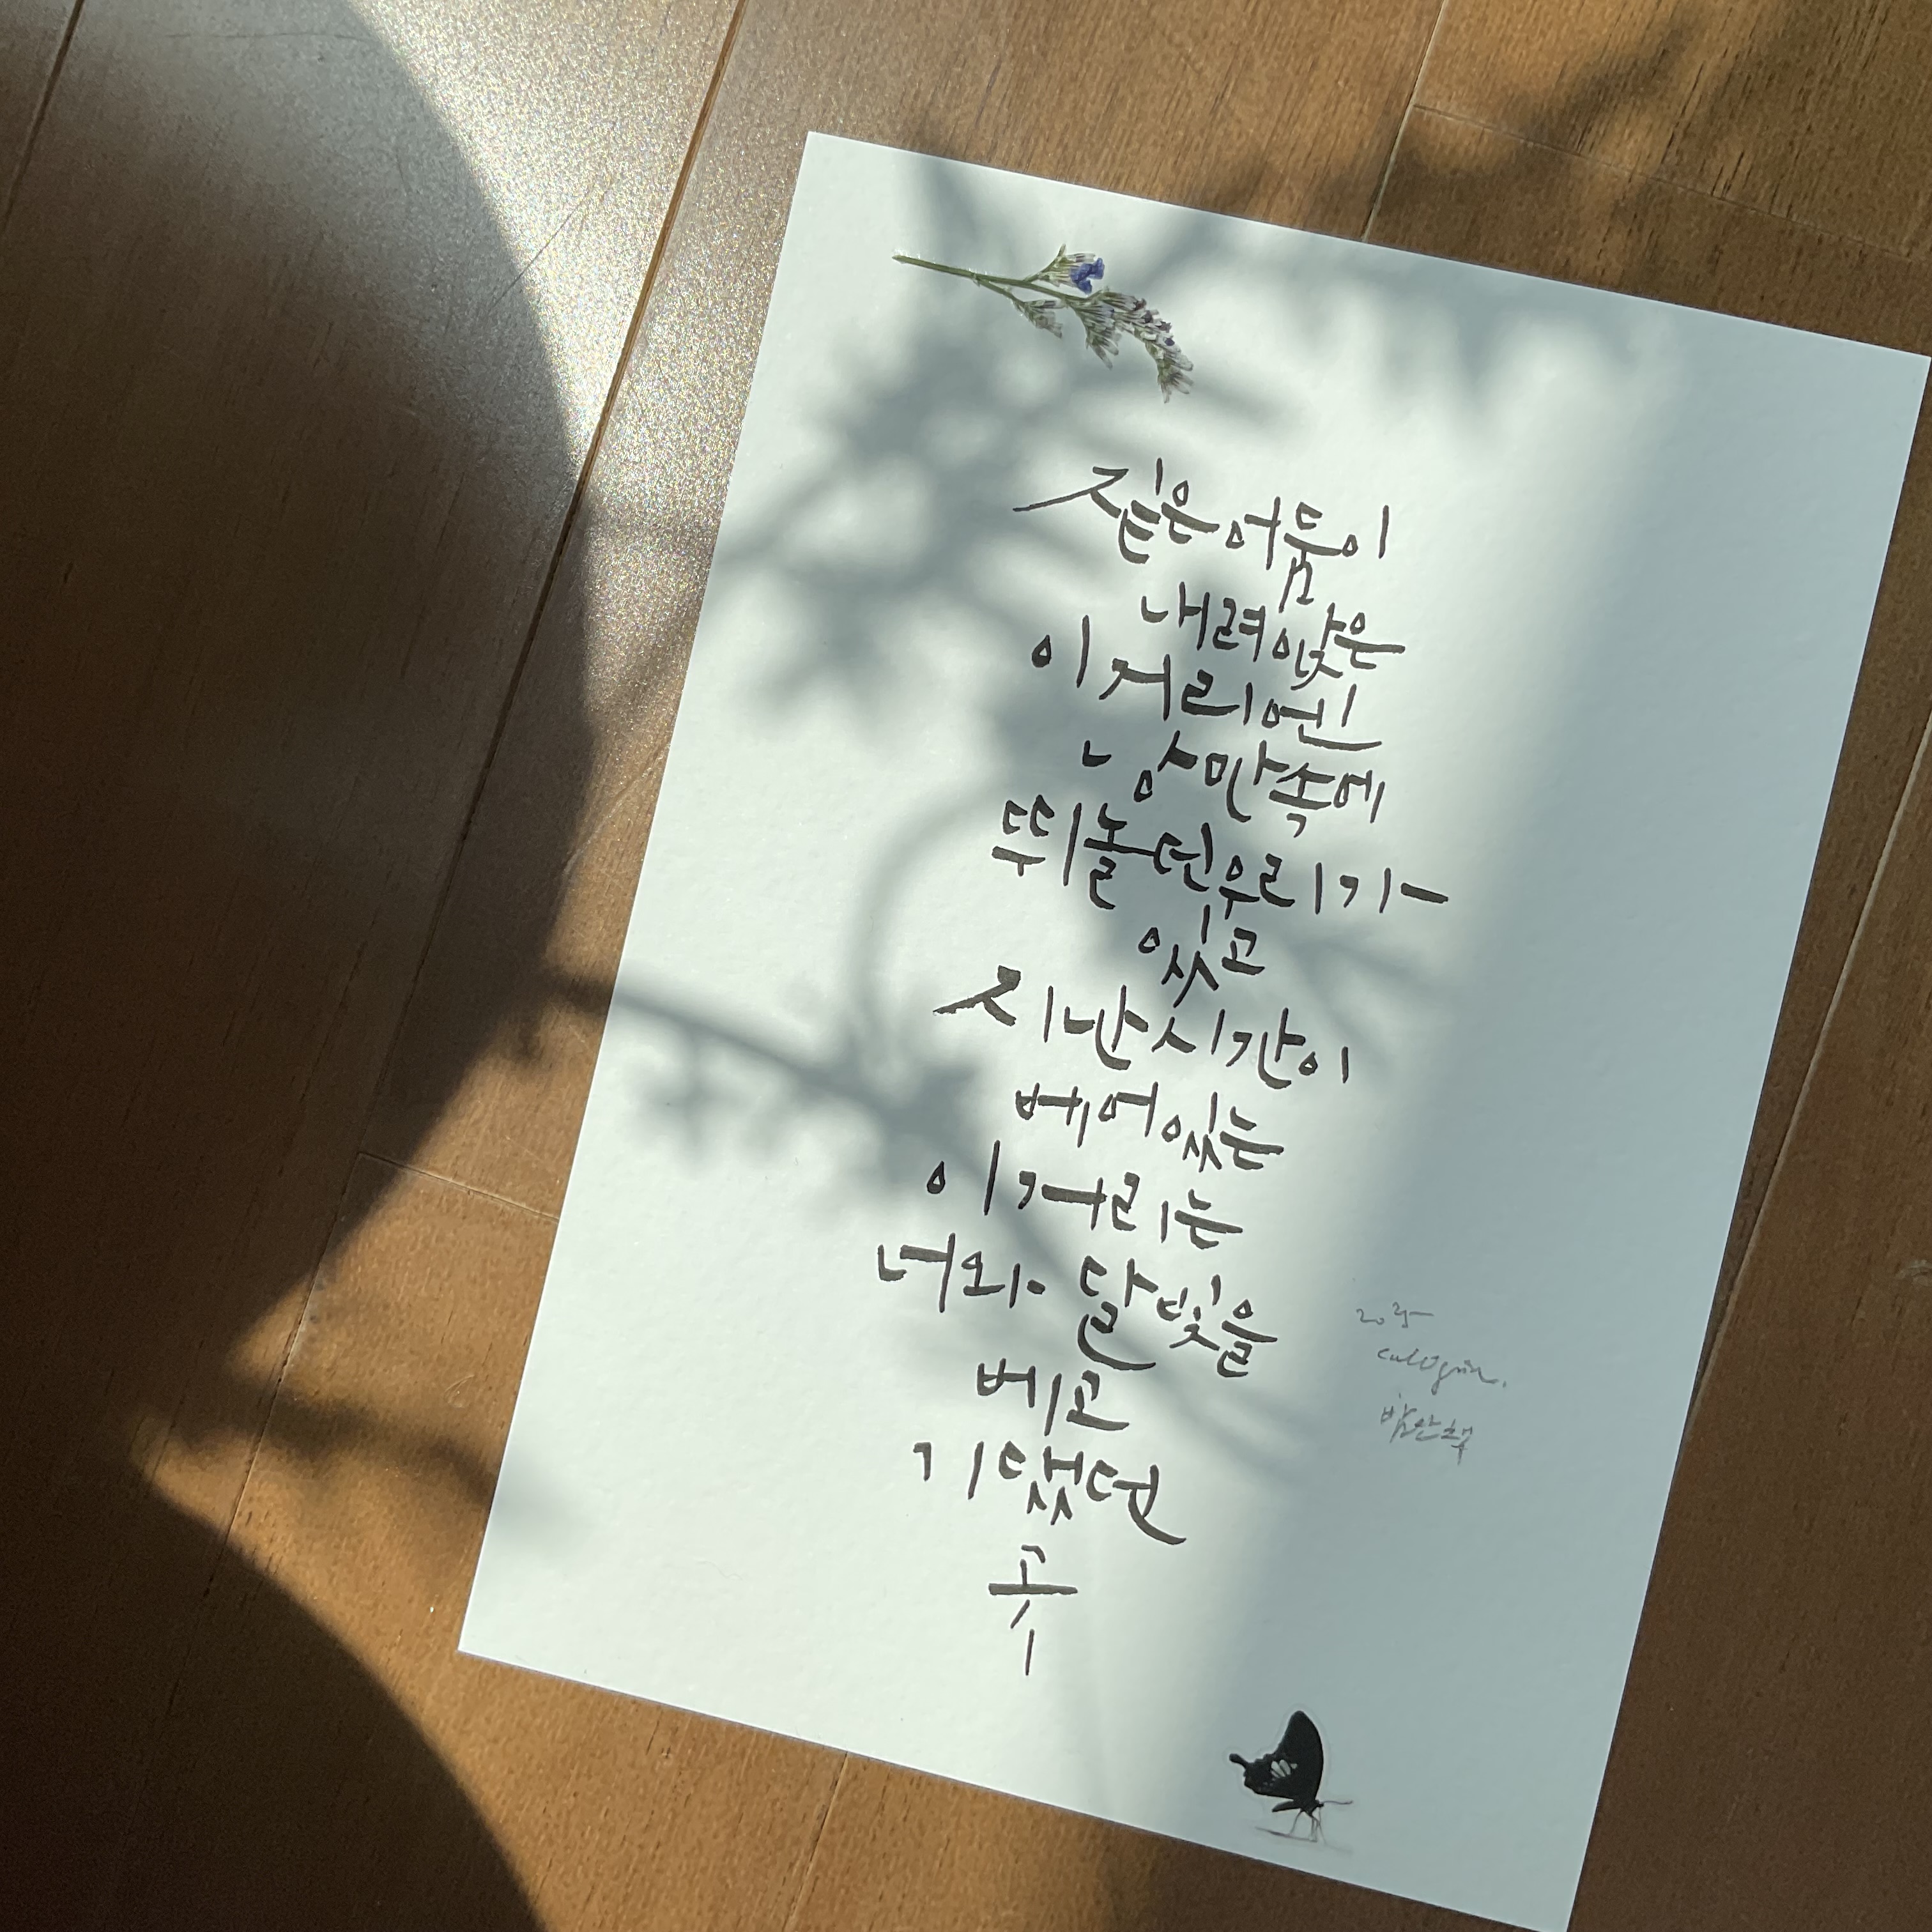 짙은 어둠이
내려앉은
이 거리엔
낭만 속에
뛰놀던 우리가
있고
지난 시간이
베어있는
이 거리는
너와 달빛을
베고
기댔던
곳
2025